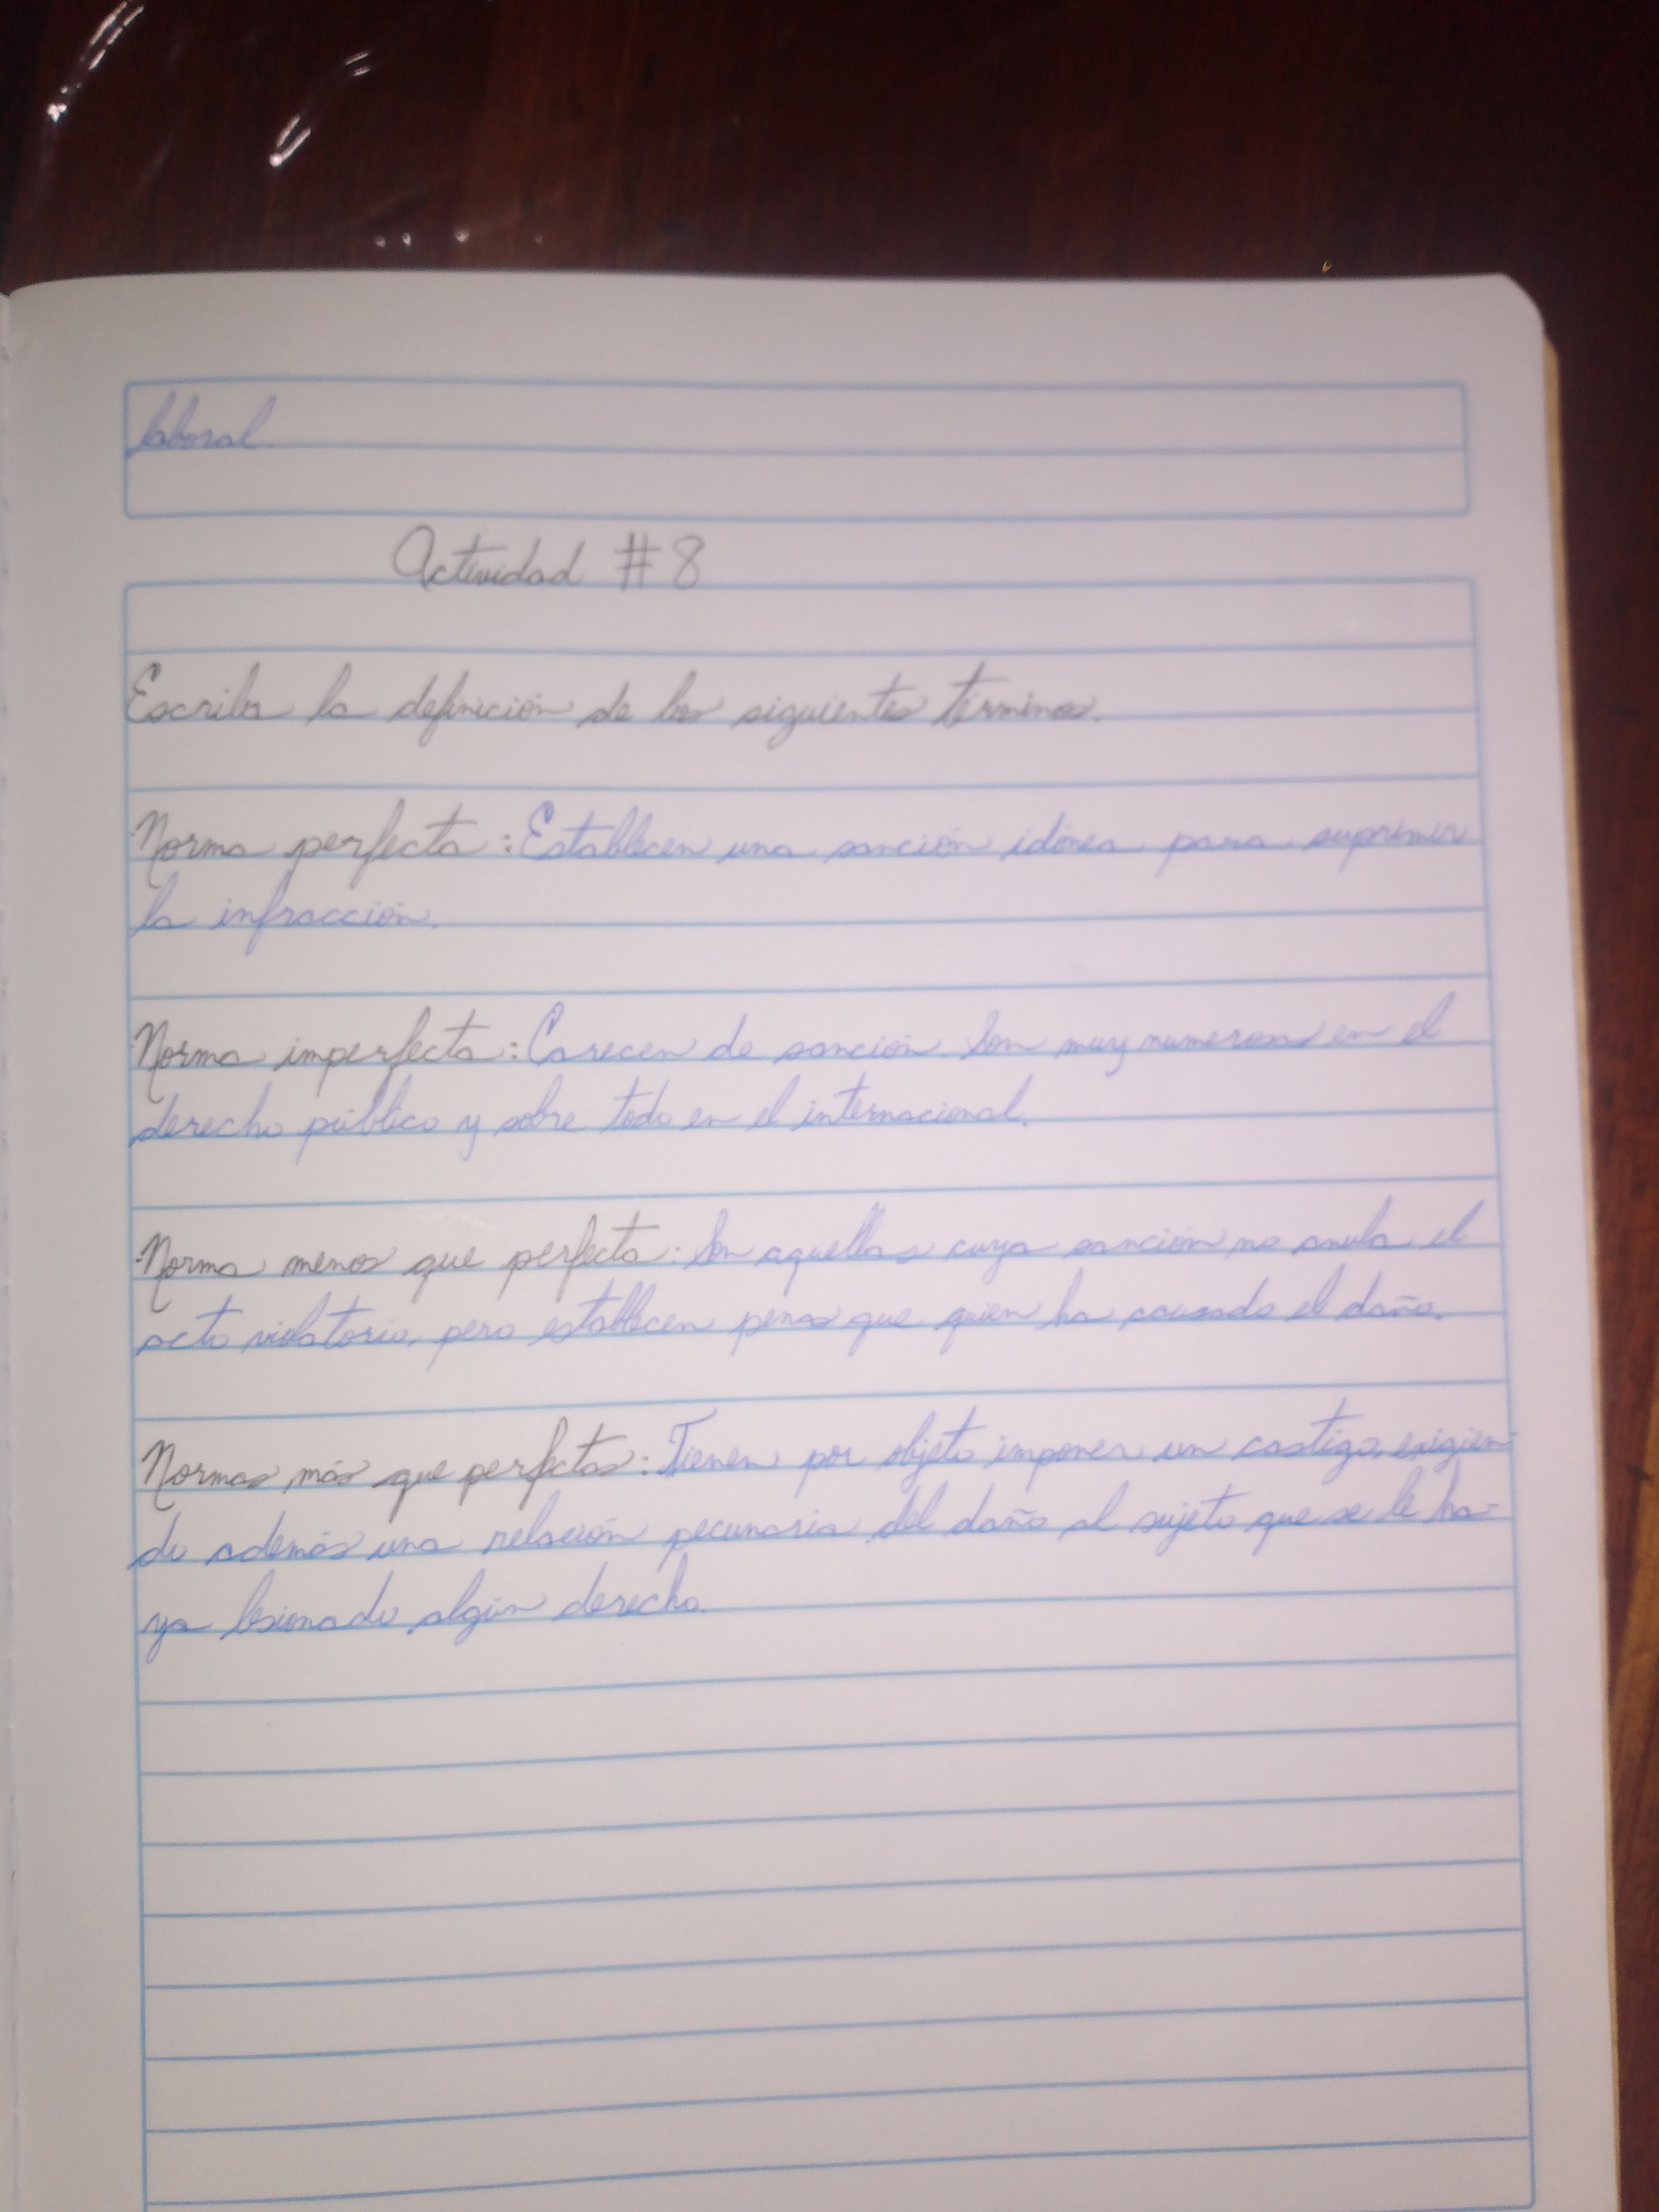 laboral.
Actividad #8
Escriba la definición de los siguientes términos.
Norma perfecta: Establecen una sanción idónea para suprimir
la infracción.
Norma imperfecta: Carecen de sanción. Son muy numerosas en el
derecho público y sobre todo en el internacional.
Norma menos que perfecta: Son aquellas cuya sanción no anula el
acto violatorio, pero establecen penas que quien ha causado el daño.
Normas más que perfectas: Tienen por objeto imponer un castigo, exigien-
do además una relación pecunaria del daño al sujeto que se le ha-
ya lesionado algún derecho.